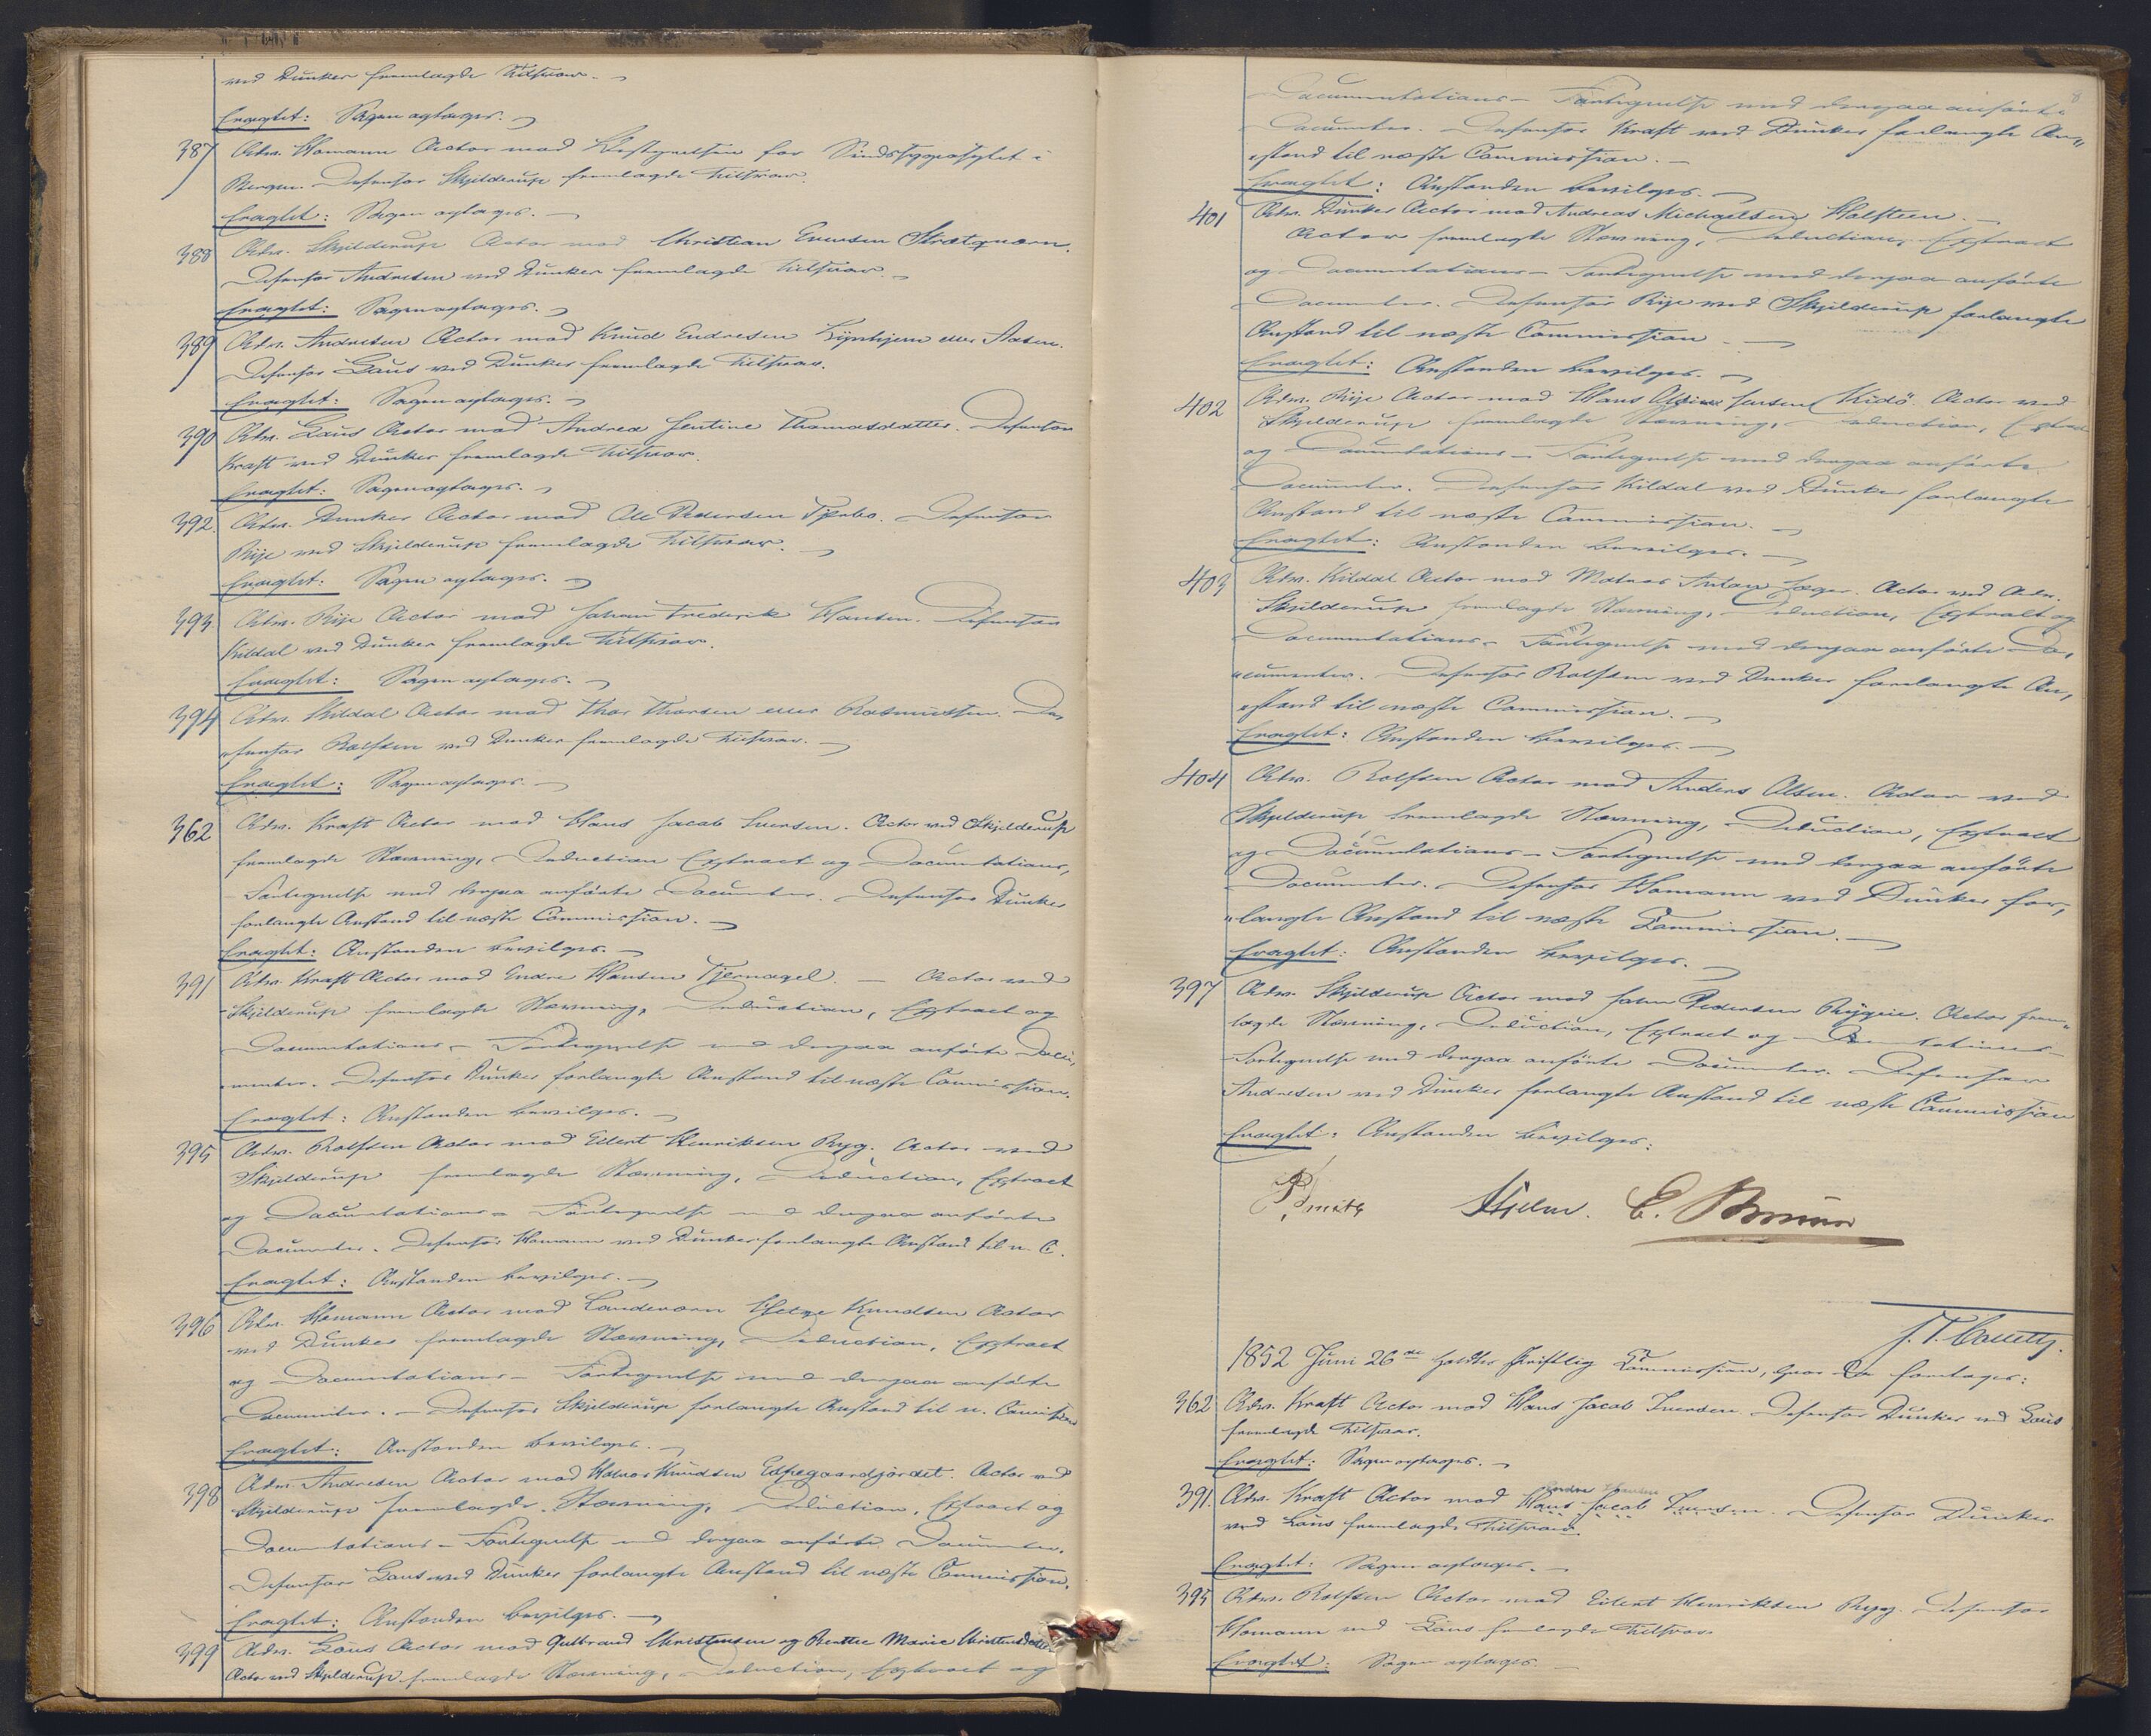 ved Dunker fremlagde Tilsvar.
Eragtet: Sagen optages.
387 Adv. Homann Actor mod Bestyrelsen for Sindssygeasylet i
Bergen. Defensor Skjelderup fremlagde Tilsvar.
Eragtet: Sagen optages.
388 Adv. Skjelderup Actor mod Christian Evensen
Defensor Andresen ved Dunker fremlagde Tilsvar.
Eragtet: Sagen optages.
389 Adv. Andresen Actor mod Knud Endresen eller Aasen.
Defensor Gaus ved Dunker fremlagde Tilsvar.
Eragtet: Sagen optages.
390 Adv. Gaus Actor mod Andrea Jentine Thomasdatter. Defensor
Kraft ved Dunker fremlagde Tilsvar.
Eragtet: Sagen optages.
392. Adv. Dunker Actor mod Ole Pedersen Defensor
Rije ved Skjelderup fremlagde Tilsvar.
Eragtet: Sagen optages.
393 Adv. Rije Actor mod Johan Frederik Hansen. Defensor
Kildal ved Dunker fremlagde Tilsvar.
Eragtet: Sagen optages.
394 Adv. Kildal Actor mod Thor Thorsen eller Rasmussen. De-
fensor Rolfsen ved Dunker fremlagde Tilsvar.
Eragtet: Sagen optages.
362 Adv. Kraft Actor mod Hans Jacob Iversen. Actor ved Skjelderup
fremlagde Stævning, Deduction Extract og Documentations-
Fortegnelse med derpaa anførte Documenter. Defensor Dunker
forlangte Anstand til næste Commission.
Eragtet: Anstanden bevilges.
391 Adv. Kraft Actor mod Endre Hansen Tjernagel. — Actor ved
Skjelderup fremlagde Stævning, Deduction, Extract og
Documentations-Fortegnelse med derpaa anførte Docu-
menter. Defensor Dunker forlangte Anstand til næste Commission.
Eragtet: Anstanden bevilges.
395 Adv. Rolfsen Actor mod Eilert Henriksen Ryg. Actor ved
Skjelderup fremlagde Stævning, Deduction, Extract
og Documentations-Fortegnelse med derpaa anførte
Documenter. Defensor Homann ved Dunker forlangte Anstand til n. C.
Eragtet: Anstanden bevilges.
396 Adv. Homann Actor mod Landeværn Helge Knudsen Actor
ved Dunker fremlagde Stævning, Deduction, Extract
og Documentations-Fortegnelse med derpaa anførte
Documenter. — Defensor Skjelderup forlangte Anstand til n.
Eragtet: Anstanden bevilges.
398 Adv. Andresen Actor mod Halvor Knudsen Actor ved
Skjelderup fremlagde Stævning, Deduction, Extract og
Documentations-Fortegnelse med derpaa anførte Documenter.
Defensor Gaus ved Dunker forlangte Anstand til næste Commission.
Eragtet: Anstanden bevilges.
399 Adv. Gaus Actor mod Gulbrand Christensen og Marie Christensdatter
Actor ved Skjelderup fremlagde Stævning, Deduction, Extract og
8
Documentations-Fortegnelse med derpaa anførte
Documenter. Defensor Kraft ved Dunker forlangte An-
stand til næste Commission.
Eragtet: Anstanden bevilges.
401 Adv. Dunker Actor mod Andreas Michaelsen Halsteen.
Actor fremlagde Stævning, Deduction, Extract
og Documentations-Fortegnelse med derpaa anførte
Documenter. Defensor Rije ved Skjelderup forlangte
Anstand til næste Commission.
Eragtet: Anstanden bevilges.
402 Adv. Rije Actor mod Hans Jensen Kidö. Actor ved
Skjelderup fremlagde Stævning, Deduction, Extract
og Documentations-Fortegnelse med derpaa anførte
Documenter. Defensor Kildal ved Dunker forlangte
Anstand til næste Commission.
Eragtet: Anstanden bevilges.
403 Adv. Kildal Actor mod Matros Anton Jæger. Actor ved Adv.
Skjelderup fremlagde Stævning, Deduction, Extract og
Documentations-Fortegnelse med derpaa anførte Do-
cumenter. Defensor Rolfsen ved Dunker forlangte An-
stand til næste Commission.
Eragtet: Anstanden bevilges.
404 Adv. Rolfsen Actor mod Anders Olsen. Actor ved
Skjelderup fremlagde Stævning, Deduction, Extract
og Documentations-Fortegnelse med derpaa anførte
Documenter. Defensor Homann ved Dunker for-
langte Anstand til næste Commission.
Eragtet: Anstanden bevilges.
397 Adv. Skjelderup Actor mod John Pedersen Actor frem-
lagde Stævning, Deduction, Extract og Documentations-
Fortegnelse med derpaa anførte Documenter. Defensor
Andresen ved Dunker forlangte Anstand til næste Commission
Eragtet: Anstanden bevilges:
Hjelm. E.
1852 Juni 26de holdtes skriftlig Commission, hvor da foretages:
362 Adv. Kraft Actor mod Hans Jacob Iversen. Defensor Dunker ved Gaus
fremlagde Tilsvar.
Eragtet: Sagen optages.
391. Adv. Kraft Actor mod Endre Hansen Hans Jacob Iversen. Defensor Dunker
ved Gaus fremlagde Tilsvar.
Eragtet: Sagen optages.
395 Adv. Rolfsen Actor mod Eilert Henriksen Ryg. Defensor
Homann ved Gaus fremlagde Tilsvar.
Eragtet: Sagen optages.